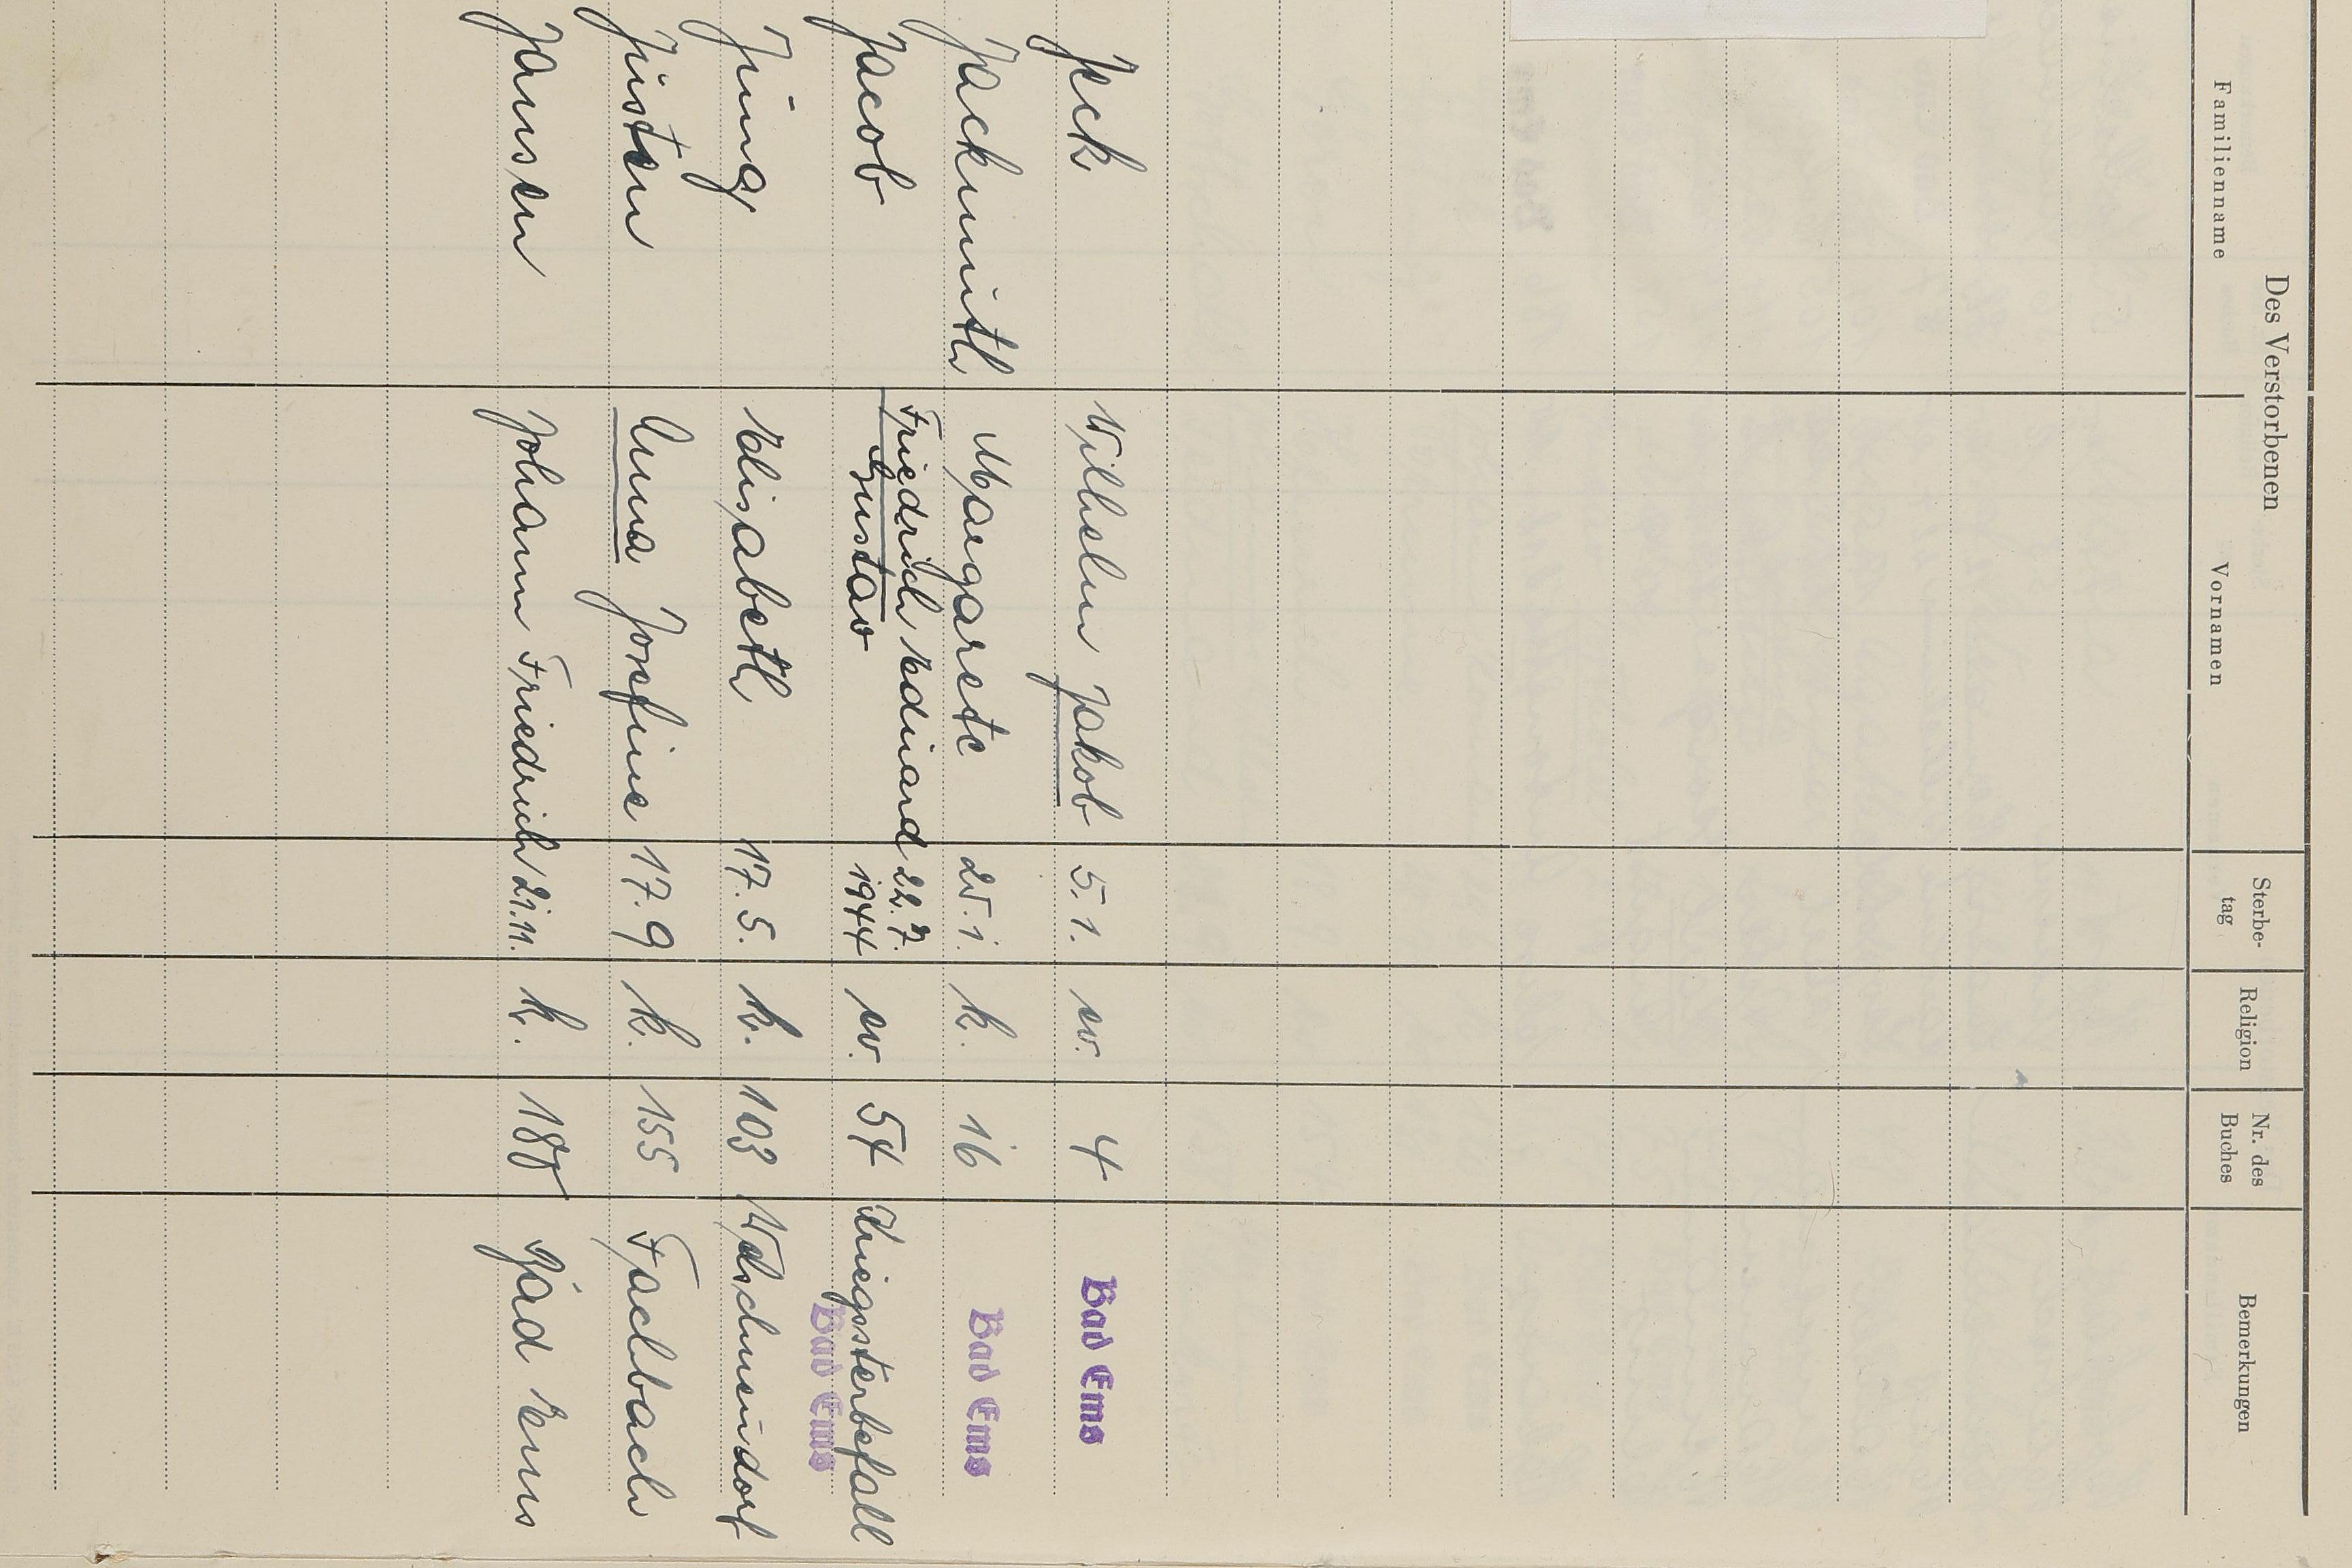 Des Verstorbenen
Familienname Vornamen Sterbe- tag Religion Nr. des Buches Bemerkungen
Jeck Wilhelm Jakob 5.1. ev. 4 Bad Ems
Jackmuth Margarete 25.1. k. 16 Bad Ems
Jacob Friedrich Eduard Gustav 22.7. 1944 ev. 54 Kriegssterbefall Bad Ems
Jung Elisabeth 17.5. k. 103 Welschneudorf
Justen Anna Josefine 17.9 k. 155 Fachbach
Jansen Johann Friedrich 21.11. k. 188 Bad Ems